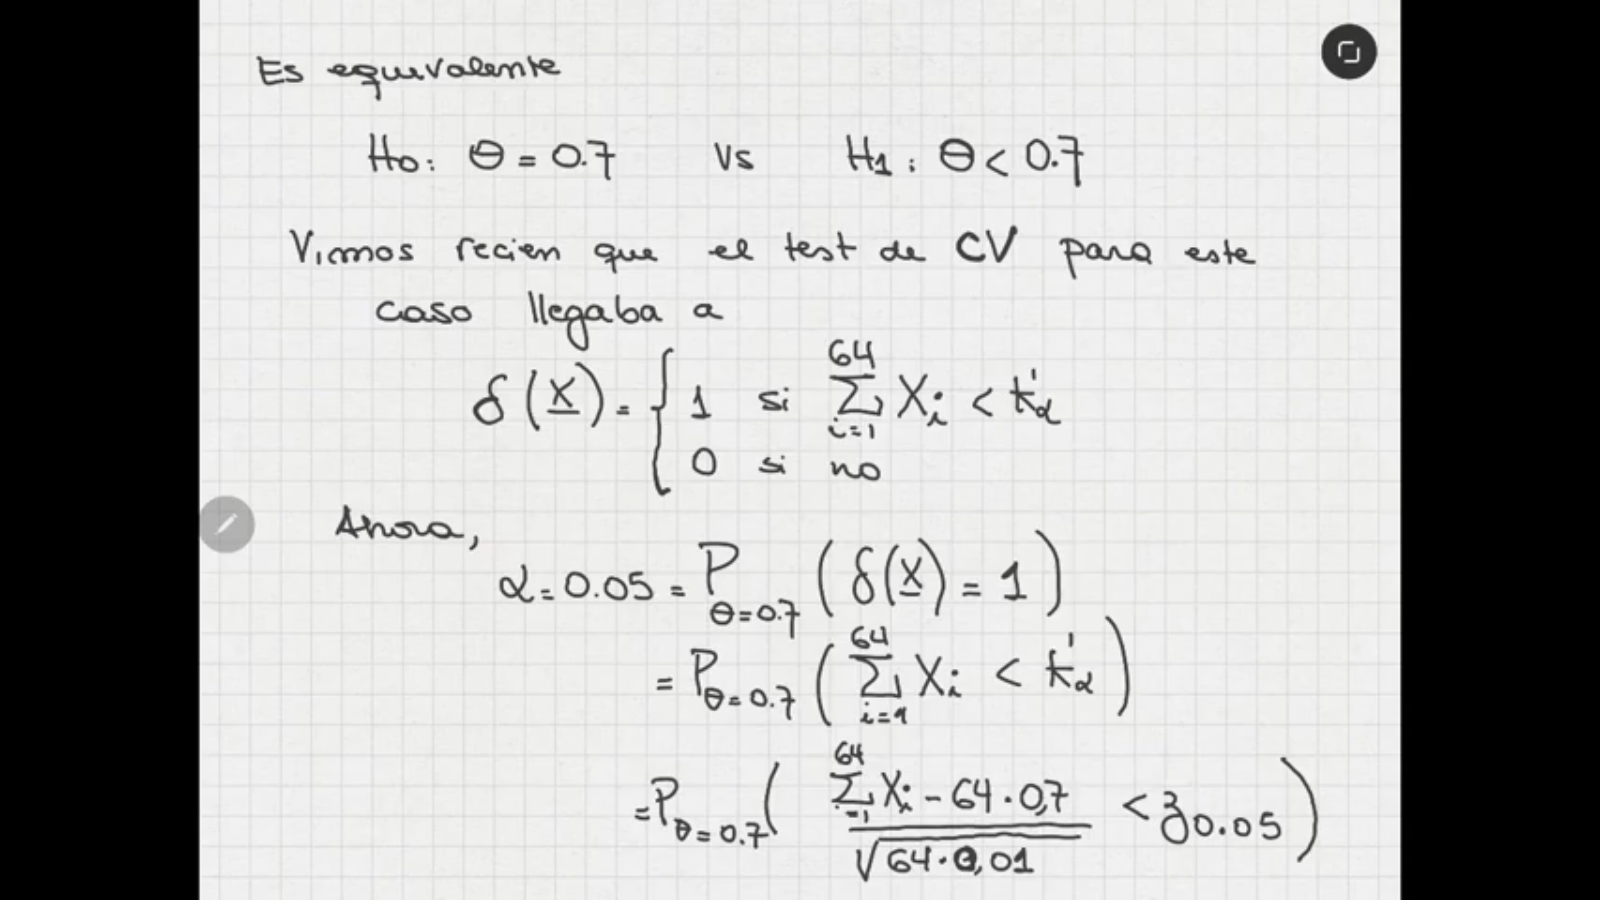 Es equivalente
H0: θ = 0.7 vs H1: θ < 0.7
Vimos recien que el test de CV para este
caso llegaba a
δ(X) = { 1 si ∑_{i=1}^{64} Xi < k'α
0 si no
Ahora,
α = 0.05 = P_{θ=0.7} ( δ(X) = 1 )
= P_{θ=0.7} ( ∑_{i=1}^{64} Xi < k'α )
= P_{θ=0.7} ( (∑_{i=1}^{64} Xi - 64·0,7) / √(64·0,01) < z_{0.05} )